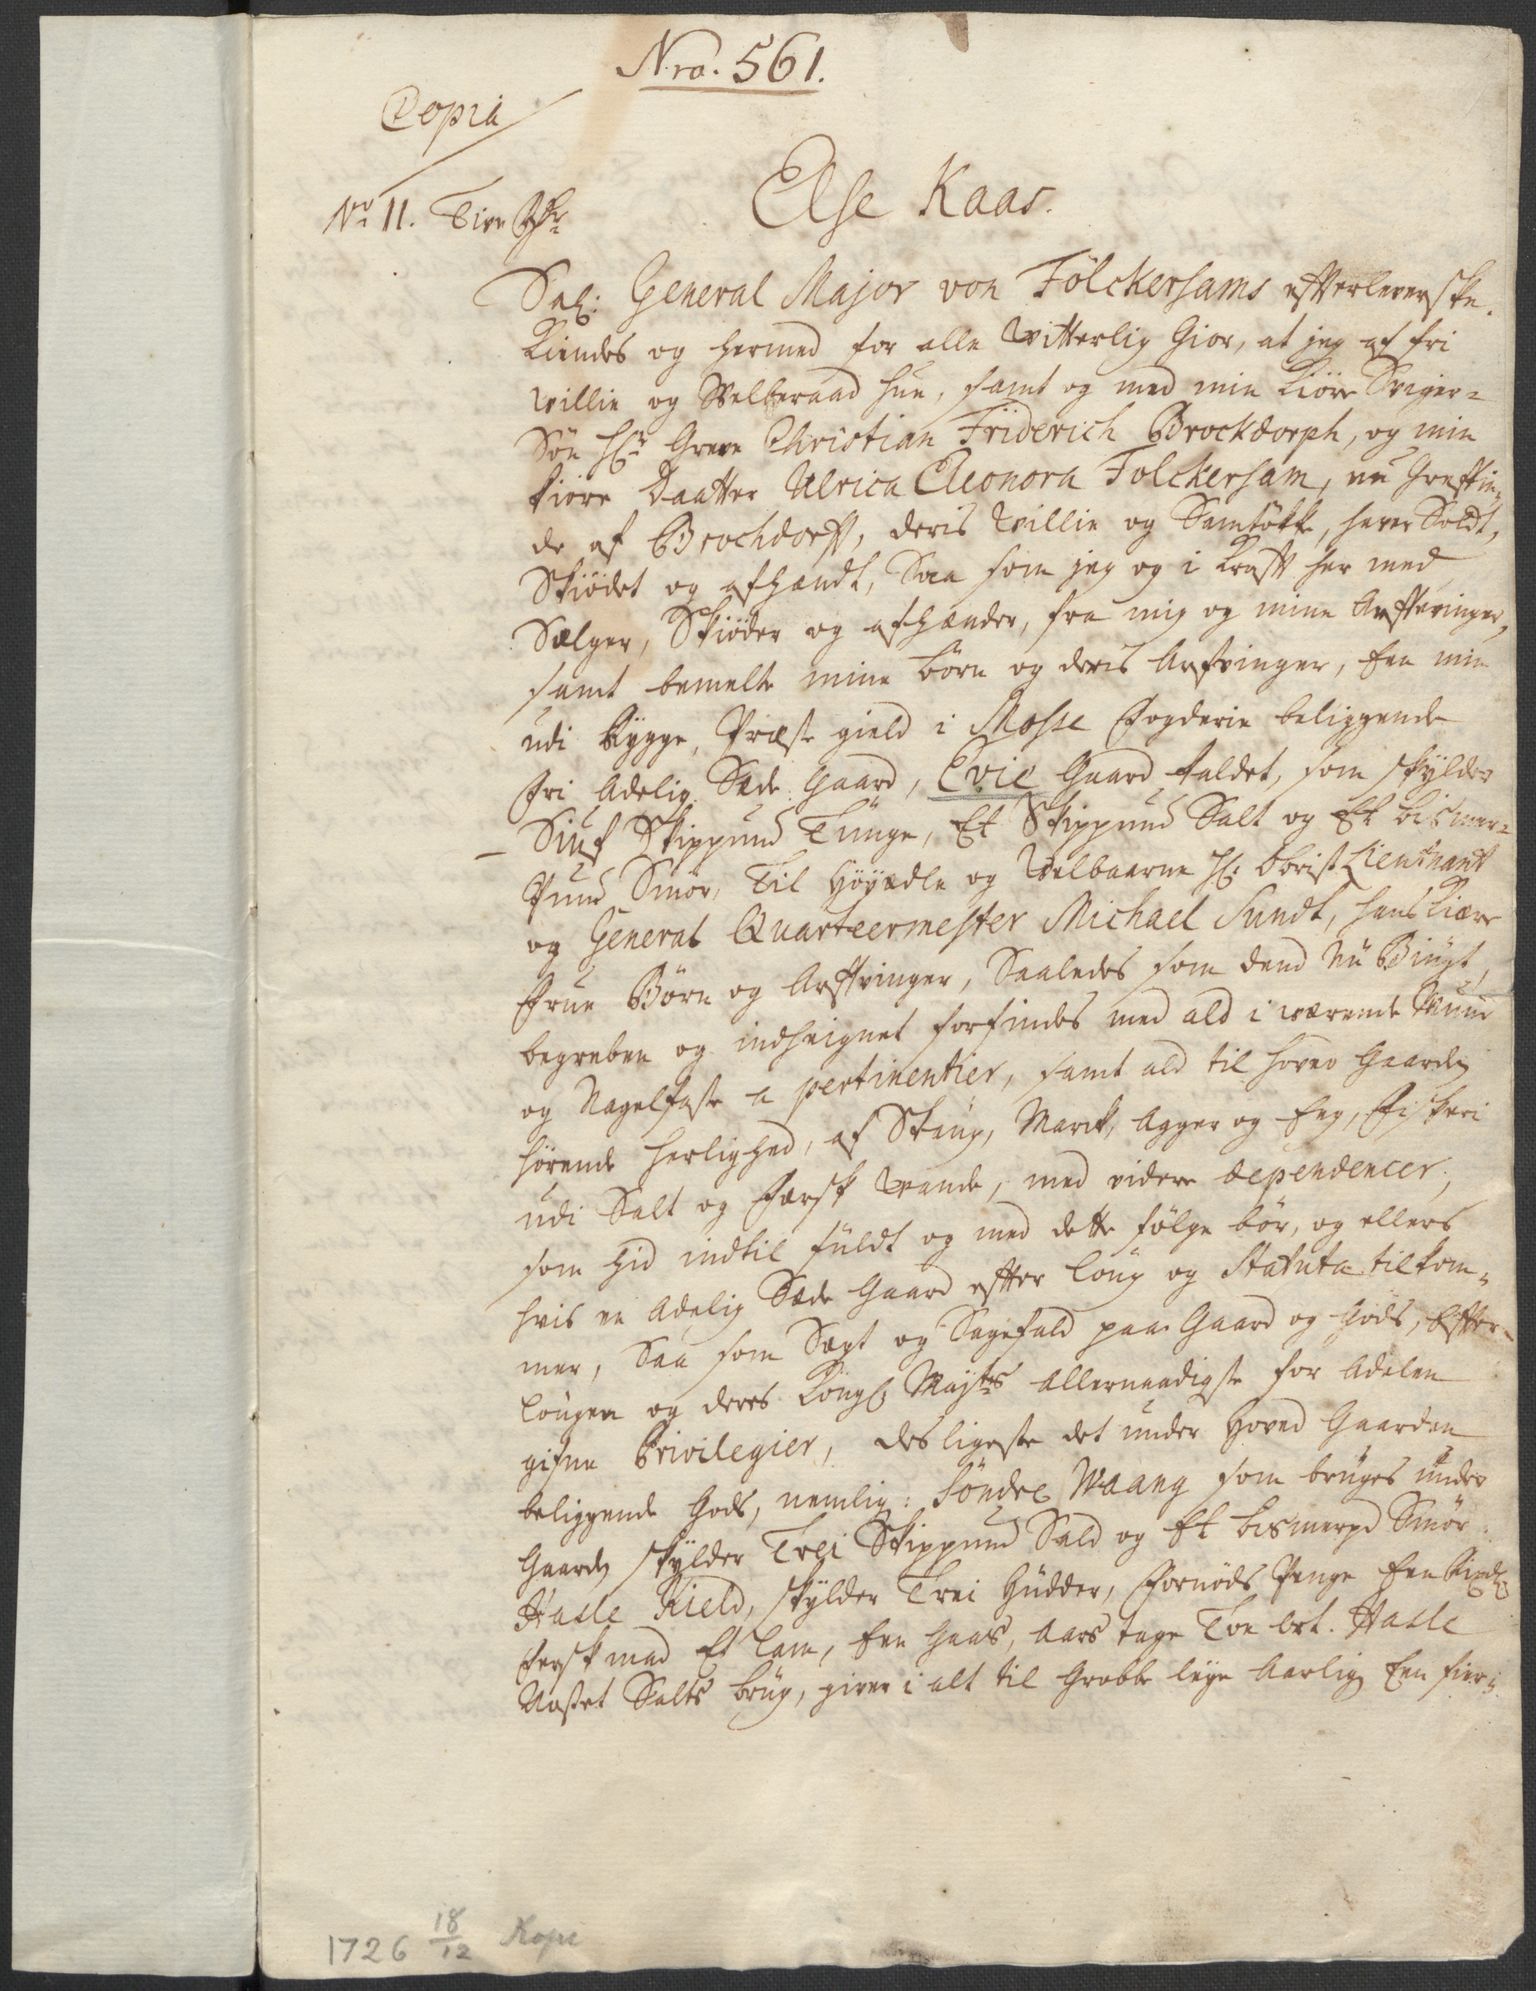 Nro. 561.
Copia
No 11. Tive Rdr
Else Kaas.
Sal: General Major von Fölckersams efterleverske.
Kiendes og hermed for alle Witterlig Giør, at jeg af fri
Willie og Velberaad hue, samt og med min Kiøre Sviger-
Søn Hr Greve Christian Friderich Brockdorph, og min
kiøre Daatter Ulrica Eleonora Folckersam, nu Greffin-
de af Brochdorff, deris Willie og Samtøkke, haver Soldt,
Skiødet og afhændt, Saa som jeg og i Krafft her med
Sælger, Skiøder og afhænder, fra mig og mine Arffvinger,
samt bemelte mine børn og deris Arfvinger, Een min
udi Rygge, Præste gield i Mosse Fogderie beliggende
Fri Adelig Sæde Gaard, Evie Gaard kaldet, som skylder
Siuf Skippund Tunge, Et Skippund Salt og Et bismer-
Pund Smør, Til Høyædle og Velbaarne Hr: Obrist Lieutnant
og General Quarteermester Michael Sundt, hans Kiære
Frue Børn og Arffvinger, Saaledes som dend Nu Biugt,
begreben og indheignet forfindes med ald i værende Muur
og Nagelfaste a pertinentier, samt ald til hoved Gaarden
hørende herlighed, af Skoug, Marck, Agger og Eng, Fiskeri
udi Salt og Færsk Vande, med videre dependencer,
som hid indtil fuldt og med dette følge bør, og ellers
hvis en Adelig Sæde Gaard effter Loug og Statuta tilkom-
mer, Saa som Sagt og Sagefald paa Gaard og Gods, Effter
Lougen og deres Kongl: Mayts Allernaadigste for Adelen
gifne Privilegier, desligeste det under Hoved Gaarden
beliggende Gods, nemlig: Söndre Waang som bruges under
Gaarden skylder Trei Skippund Sald og Et bismerpd Smør
Hasle Kield, skylder Trei Hudder, Fornøds Penge Een
Fersk mad Et Lam, Een Gaas, Aars tage Toe ort. Hasle
Nostet Salts brug, giver i alt til Grobbe leye Aarlig Een fier-
1726 18/12 Kopi